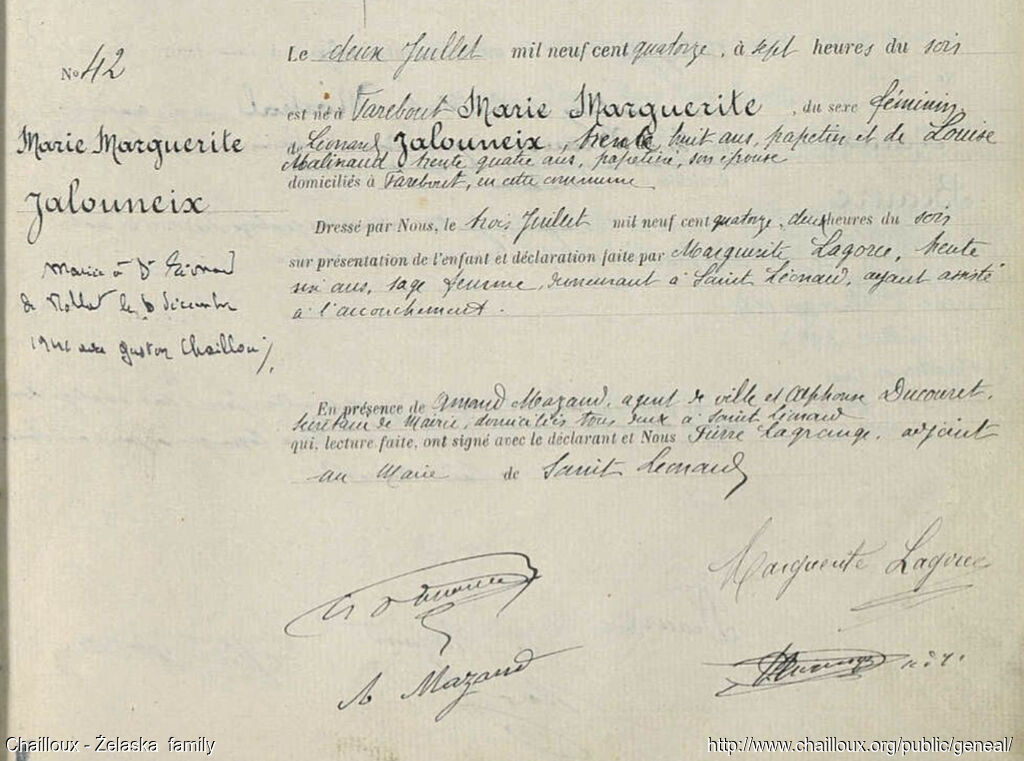 No 42
Marie Marguerite
Jalouneix
Mariée à St Léonard
de Noblat le 6 décembre
1941 avec Gaston Chailloux
Le deux Juillet mil neuf cent quatorze, à sept heures du soir
est né à Farebout Marie Marguerite, du sexe féminin,
de Léonard Jalouneix, trente huit ans, papetier et de Louise
Malinaud trente quatre ans, papetière, son épouse
domiciliés à Farebout, en cette commune
Dressé par Nous, le trois Juillet mil neuf cent quatorze, deux heures du soir
sur présentation de l'enfant et déclaration faite par Marguerite Lagorce, trente
six ans, sage femme, demeurant à Saint Léonard, ayant assisté
à l'accouchement.
En présence de Amand Mazaud, agent de ville et Alphonse Ducouret,
secrétaire de Mairie, domiciliés tous deux à Saint Léonard
qui, lecture faite, ont signé avec le déclarant et Nous Pierre Lagrange, adjoint
au Maire de Saint Léonard
Marguerite Lagorce
A Mazaud
Chailloux - Želaska family
http://www.chailloux.org/public/geneal/